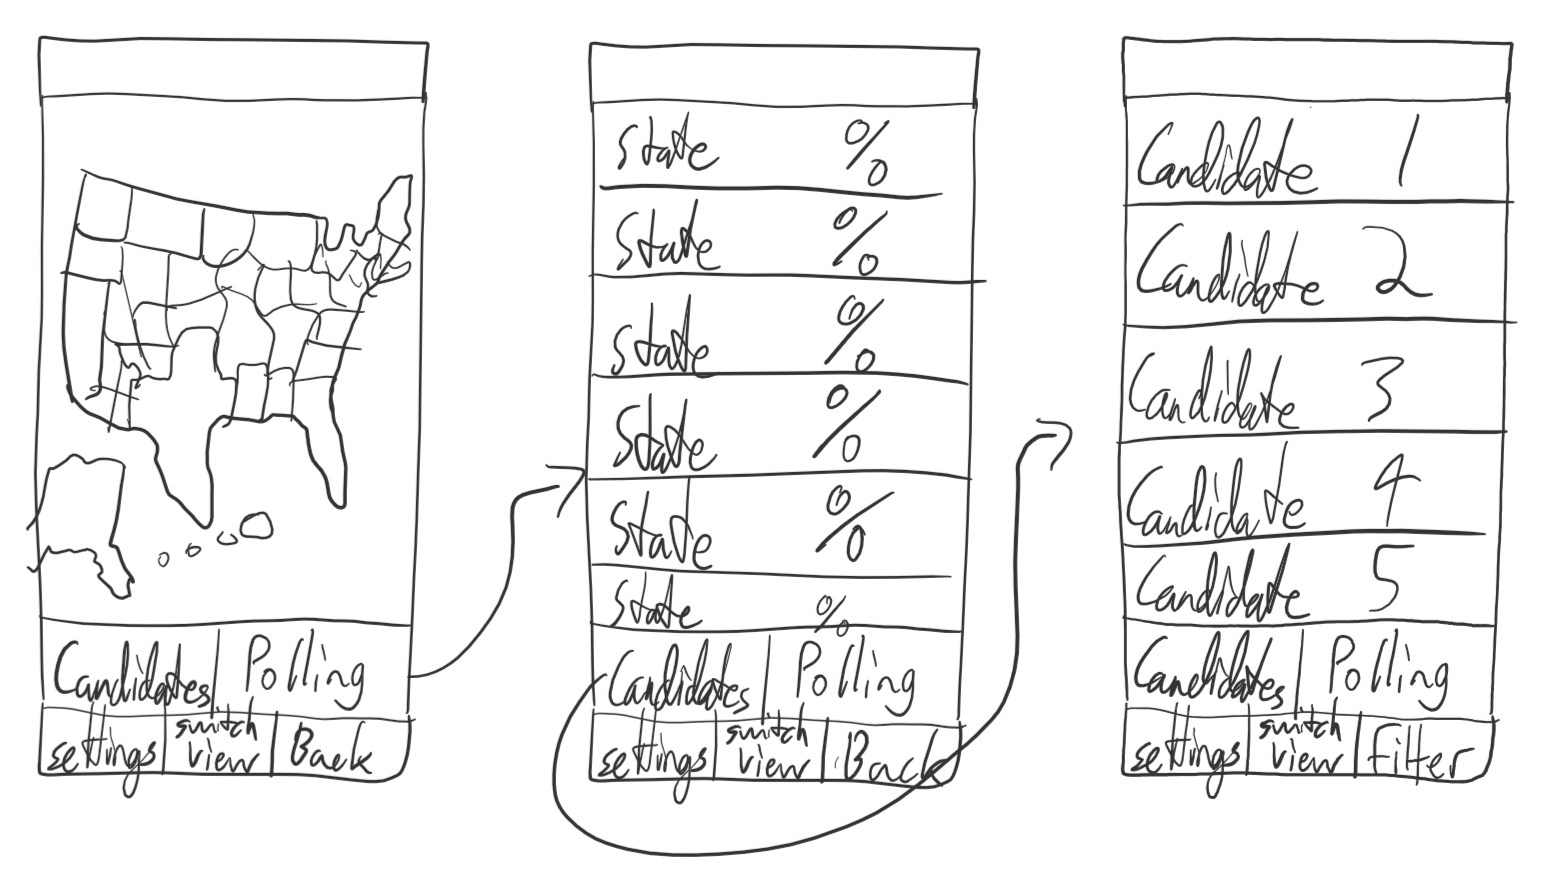 Candidates Polling
settings switch view Back
State %
State %
State %
State %
State %
State %
Candidates Polling
settings switch view Back
Candidate 1
Candidate 2
Candidate 3
Candidate 4
Candidate 5
Candidates Polling
settings switch view Filter